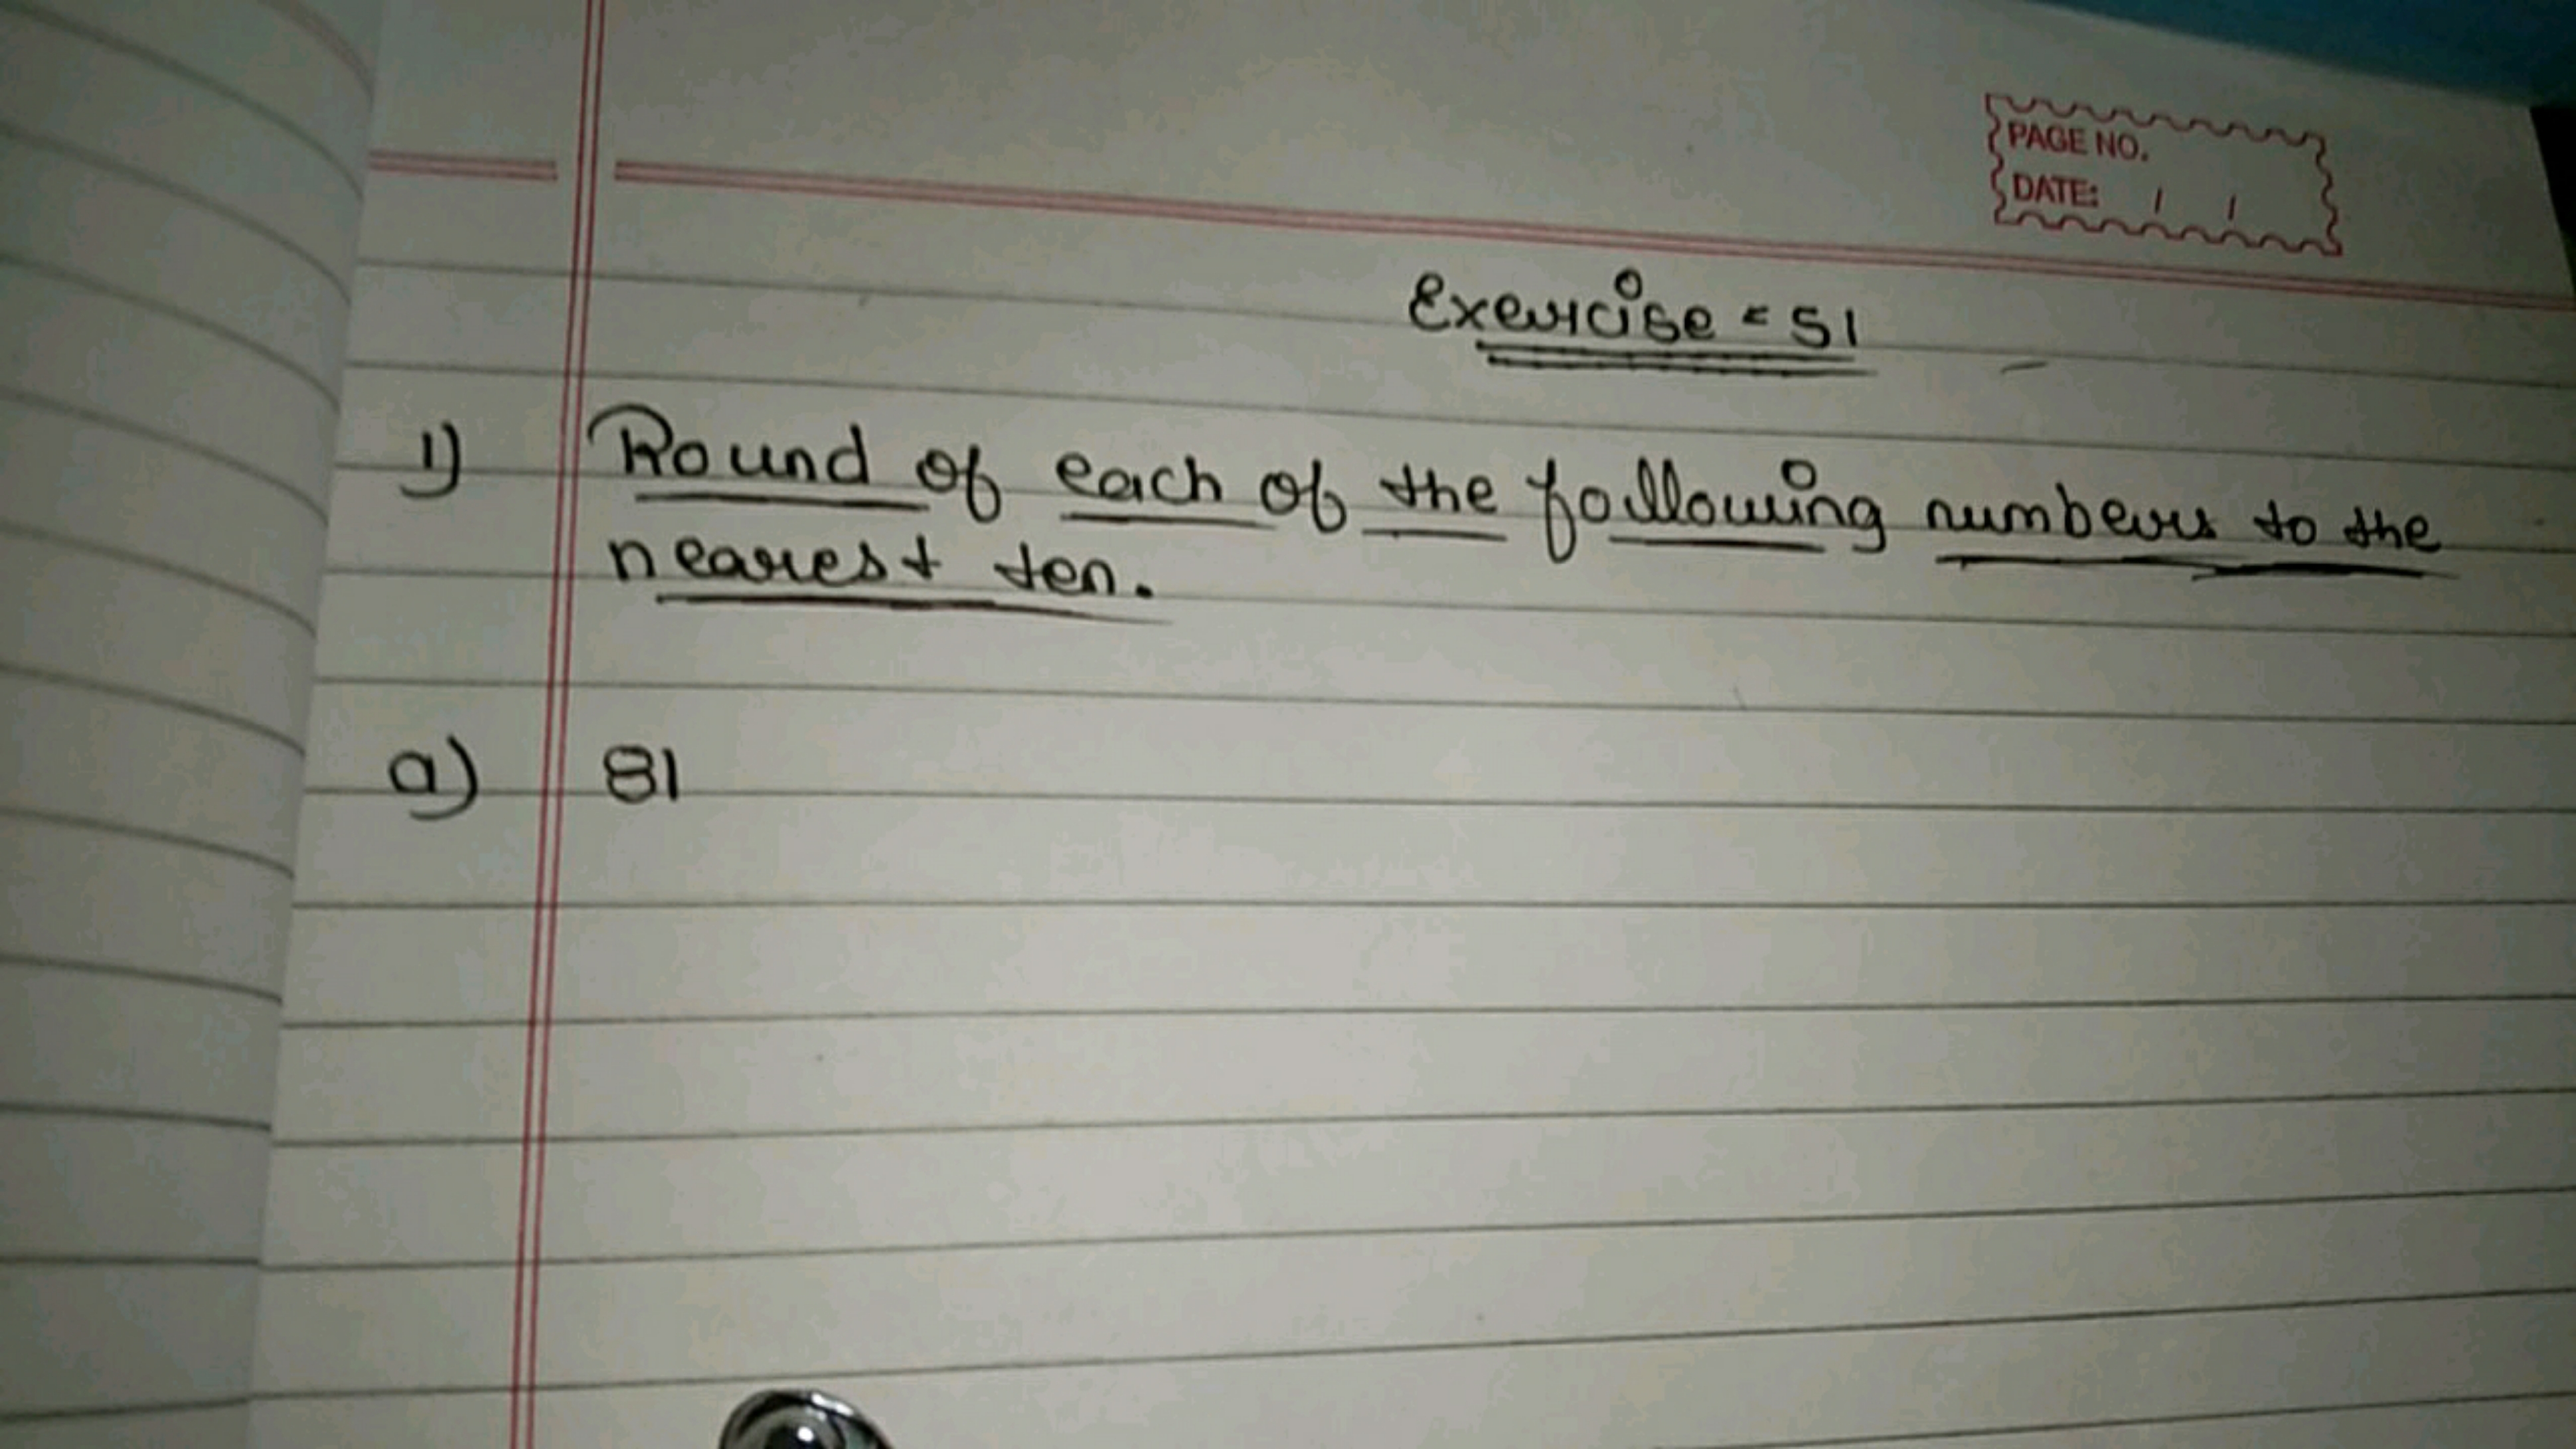 PAGE NO.
DATE: / /
Exercise = 51
1) Round of each of the following numbers to the
nearest ten.
a) 81